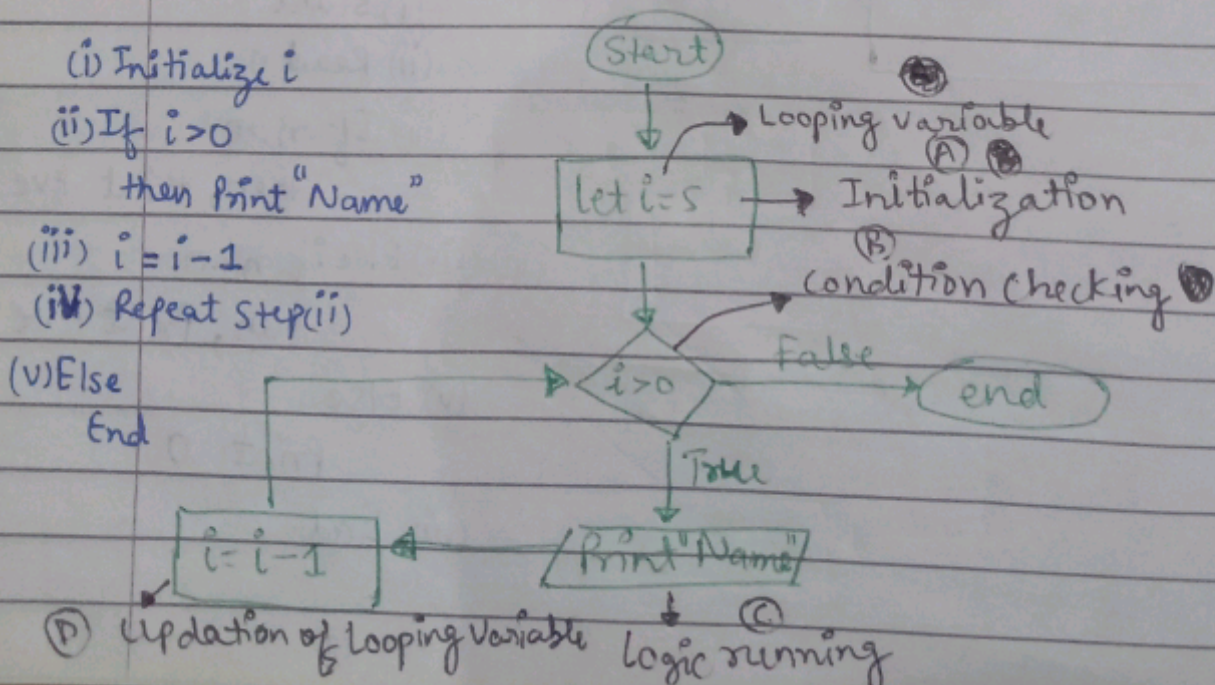 (i) Initialize i
(ii) If i>0
then Print "Name"
(iii) i = i-1
(iv) Repeat Step(ii)
(v) Else
End
Start
Looping variable
let i=5
(A)
Initialization
(B)
Condition Checking
i>0
False
end
True
Print "Name"
i = i-1
(D) Updation of Looping Variable
(C)
Logic running